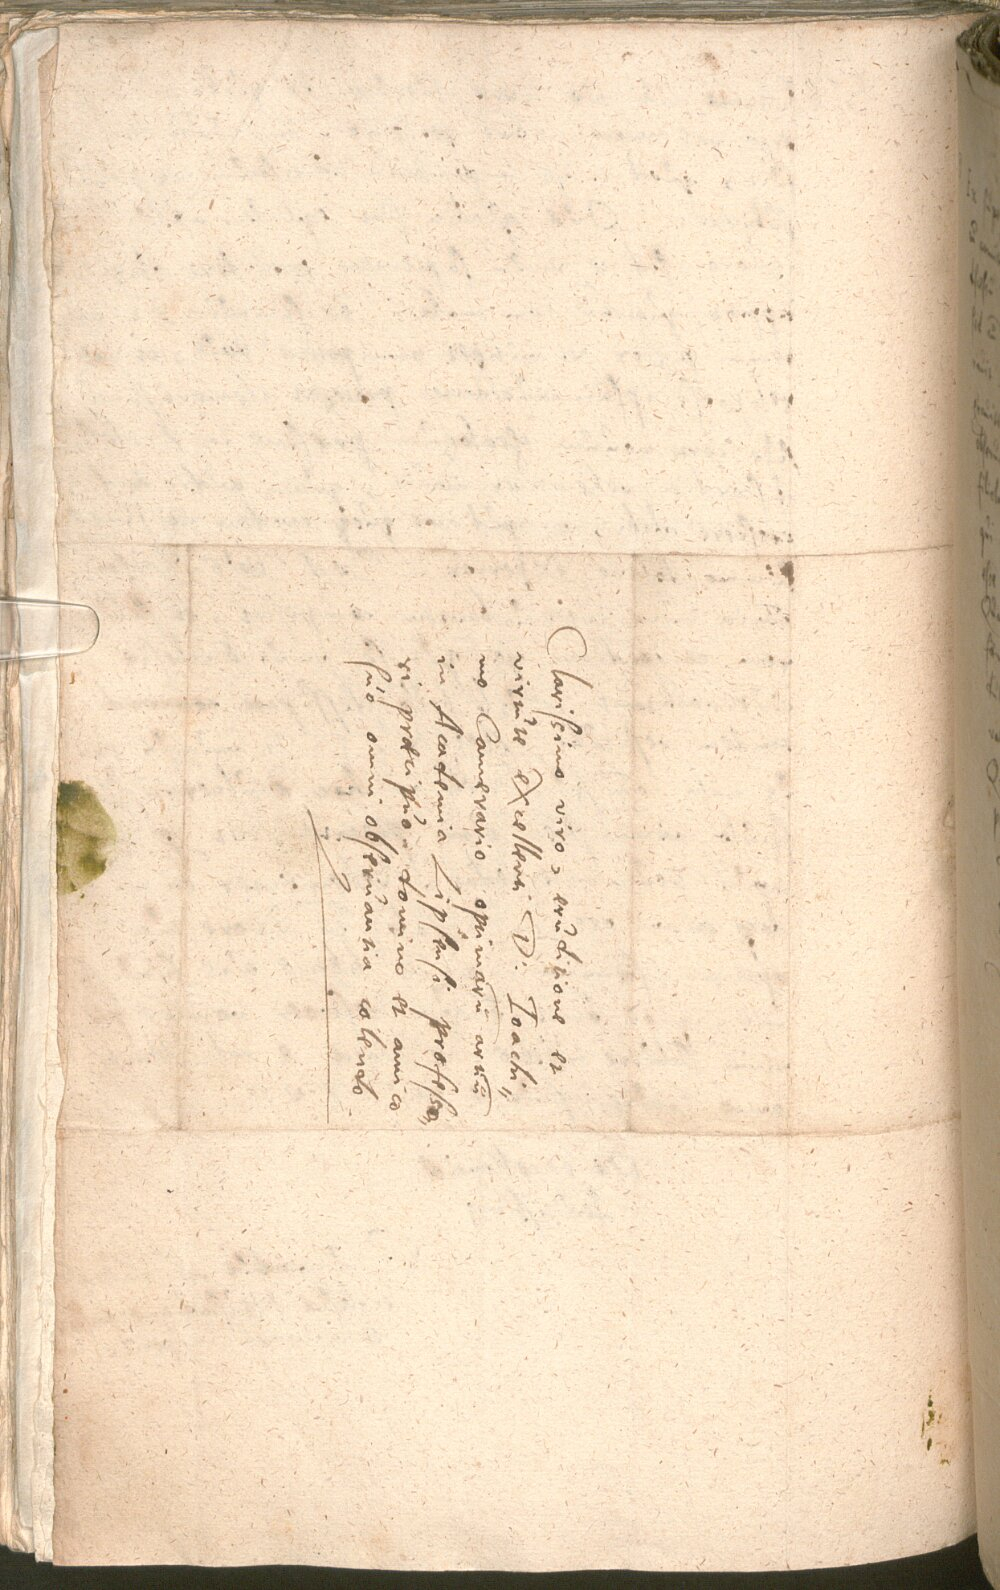 Clarissimo viro, eruditione et
virtute excellenti D. Ioachi„
mo Camerario optimarũ artiũ
in Academia Lipsensi professo„
ri præcipuo domino et amico
suo omni obseruantia colendo.